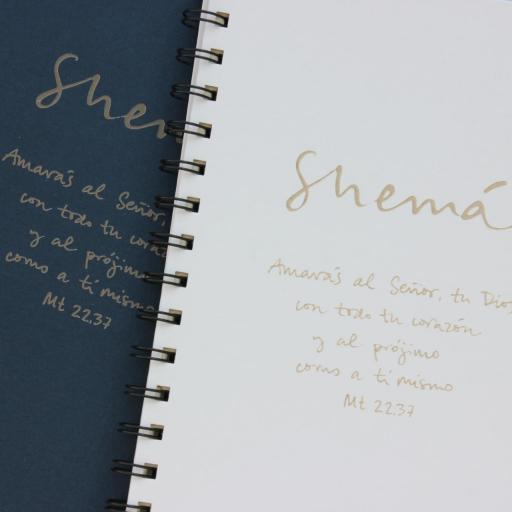 Shem
Amarás al Señor,
con todo tu coraz
y al prójimo
como a ti mismo
Mt 22.37
Shemá
Amarás al Señor, tu Dios
con todo tu corazón
y al prójimo
como a ti mismo
Mt 22.37